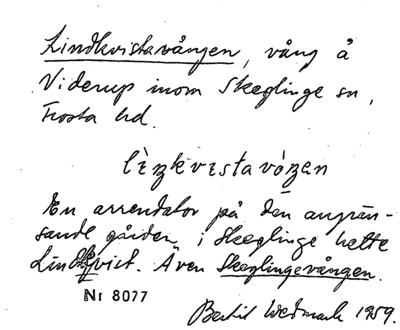 Lindkvistavången, vång å
Viderup inom Skeglinge sn,
Frosta hd.
En arrendator på den angrän-
sande gården i Skeglinge hette
Lindkvist. Även Skeglingevången.
Nr 8077
Bertil Wedmark 1959.